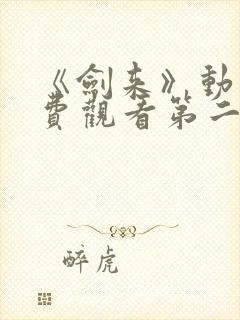 《劍来》動
費觀看第二
醉虎